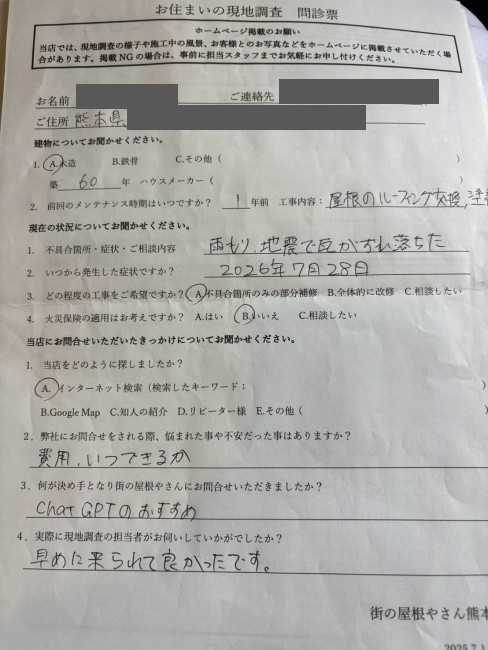 お住まいの現地調査 問診票
ホームページ掲載のお願い
当店では、現地調査の様子や施工中の風景、お客様とのお写真などをホームページに掲載させていただく場
合があります。掲載NGの場合は、事前に担当スタッフまでお気軽にお申し付けください。
お名前 ご連絡先
ご住所 熊本県
建物についてお聞かせください。
1. A.木造 B.鉄骨 C.その他( )
築 60 年 ハウスメーカー( )
2. 前回のメンテナンス時期はいつですか? 1 年前 工事内容: 屋根のルーフィング交換,塗
現在の状況についてお聞かせください。
1. 不具合箇所・症状・ご相談内容 雨もり 地震で瓦がずれ落ちた
2. いつから発生した症状ですか? 2026年7月28日
3. どの程度の工事をご希望ですか? A.不具合箇所のみの部分補修 B.全体的に改修 C.相談したい
4. 火災保険の適用はお考えですか? A.はい B.いいえ C.相談したい
当店にお問合せいただいたきっかけについてお聞かせください。
1. 当店をどのように探しましたか?
A. インターネット検索(検索したキーワード: )
B.Google Map C.知人の紹介 D.リピーター様 E.その他( )
2. 弊社にお問合せをされる際、悩まれた事や不安だった事はありますか?
費用、いつできるか
3. 何が決め手となり街の屋根やさんにお問合せいただきましたか?
Chat GPTのおすすめ
4. 実際に現地調査の担当者がお伺いしていかがでしたか?
早めに来られて良かったです。
街の屋根やさん熊本
2025.7.1